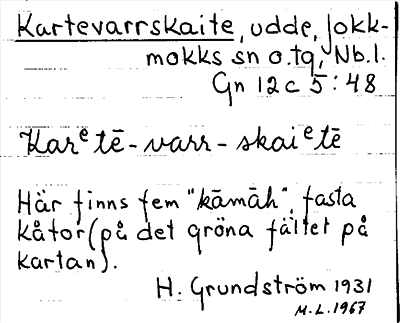 Kartevarrskaite, udde, Jokk-
mokks sn o.tg, Nb.l.
Gn 12 c 5:48
Karᵉtē-varr-skaiᵉtē
Här finns fem "kāmāh", fasta
kåtor (på det gröna fältet på
kartan).
H. Grundström 1931
M.L. 1967